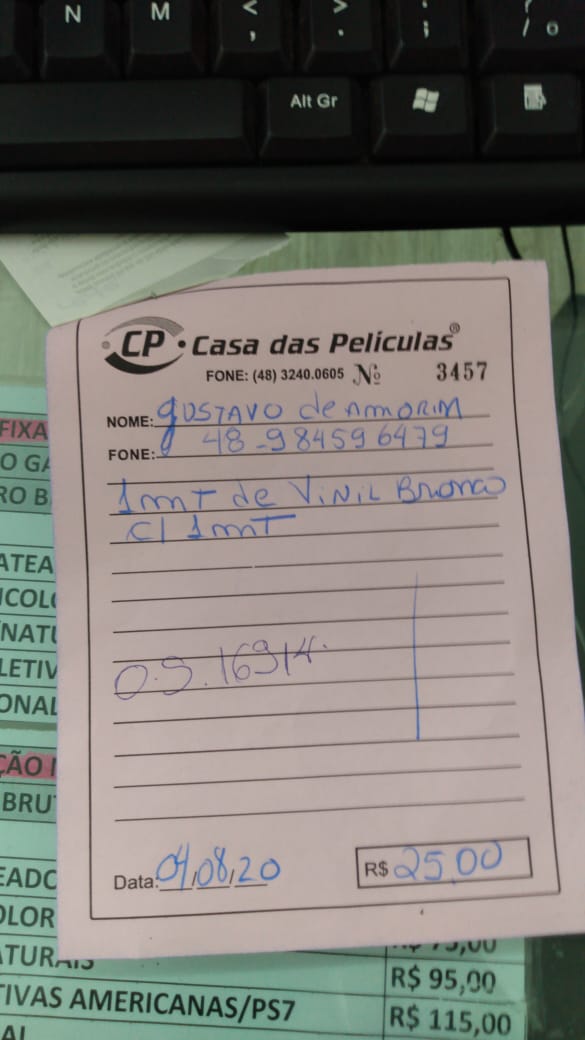 N M < , > . : ; / °
Alt Gr
CP Casa das Películas®
FONE: (48) 3240.0605 Nº 3457
NOME: GUSTAVO de AMORIM
FONE: 48-984596479
1mT de VINIL Branco
C/ 1mT
O.S. 16914.
Data: 04/08/20 R$ 25,00
FIXA
O GA
RO B
ATEA
ICOL
NATU
LETIV
ONAL
ÇÃO
BRU
EADO
OLOR
ATURAIS R$ 75,00
R$ 95,00
TIVAS AMERICANAS/PS7
R$ 115,00